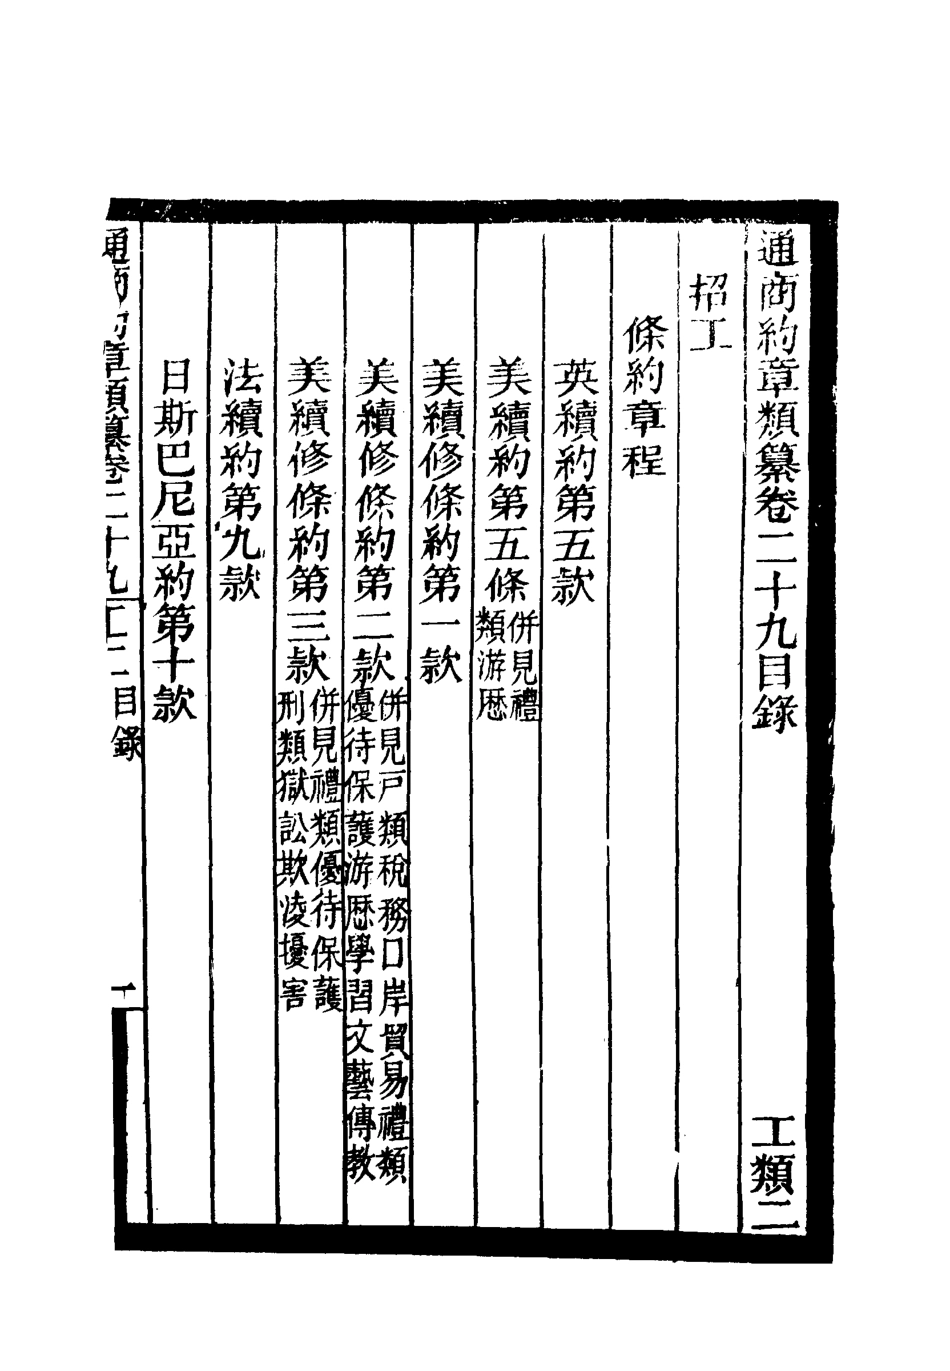 通商約章類纂卷二十九目錄　工類二
招工
條約章程
英續約第五款
美續約第五條併見禮類游歷
美續修條約第一款
美續修條約第二款併見戸類稅務口岸貿易禮類優待保護游歷學習文藝傳教
美續修條約第三款併見禮類優待保護刑類獄訟欺凌擾害
法續約第九款
日斯巴尼亞約第十款
通商約章類纂卷二十九工二目錄　一